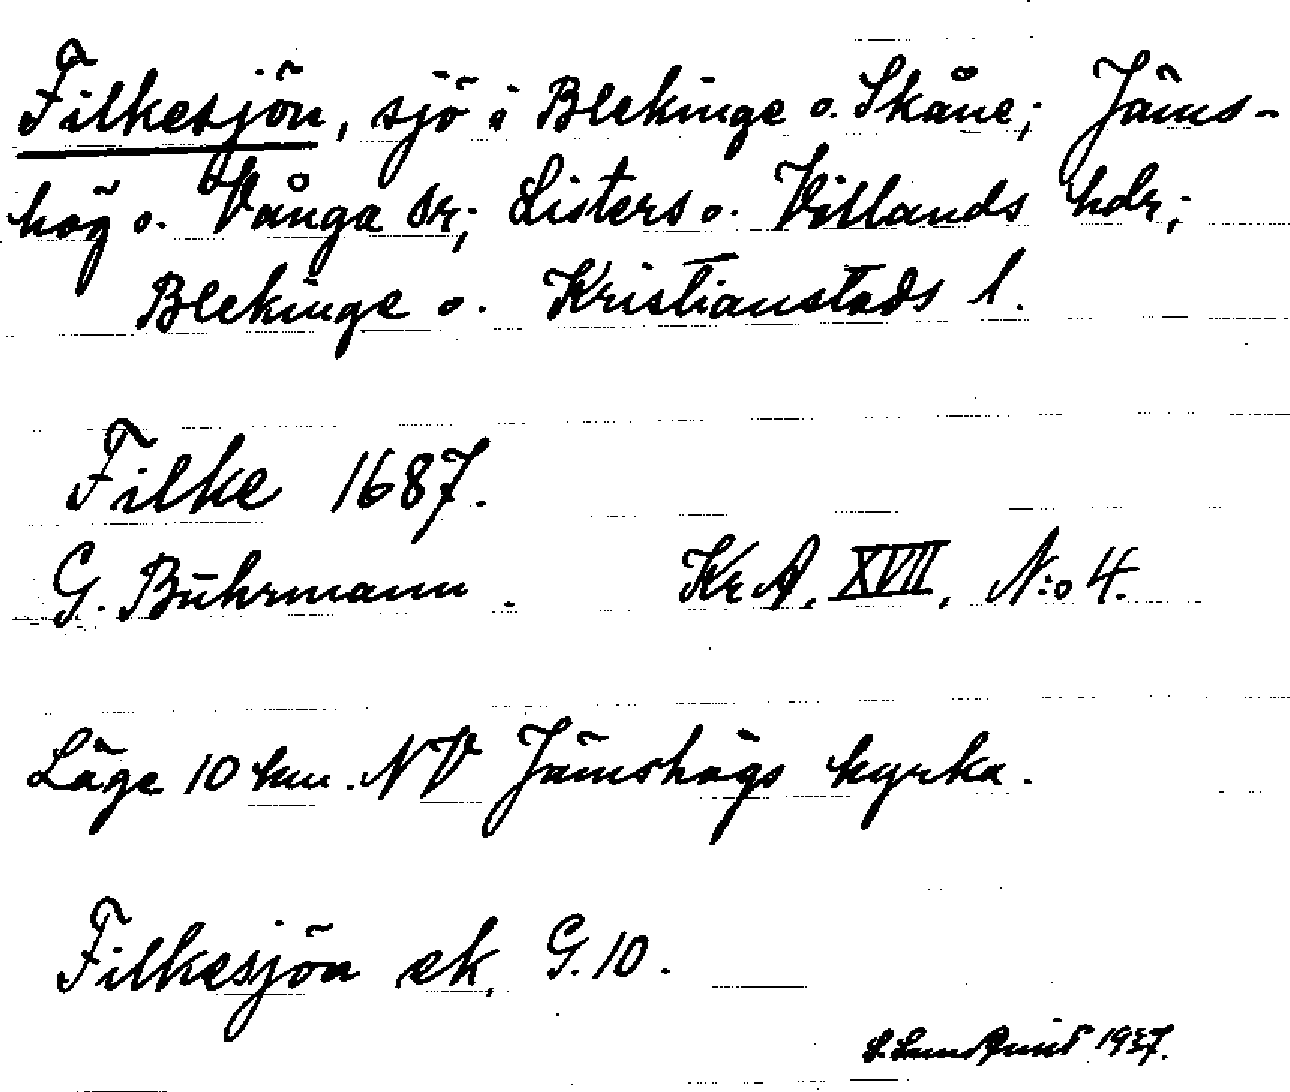 Filkesjön, sjö i Blekinge o. Skåne; Jäms-
hög o. Vånga sr; Listers o. Villands hdr;
Blekinge o. Kristianstads l.
Filke 1687.
G. Buhrmann. KrA. XVII. N:o 4.
Läge 10 km. NV Jämshögs kyrka.
Filkesjön ek. G. 10.
S. Lundquist 1937.